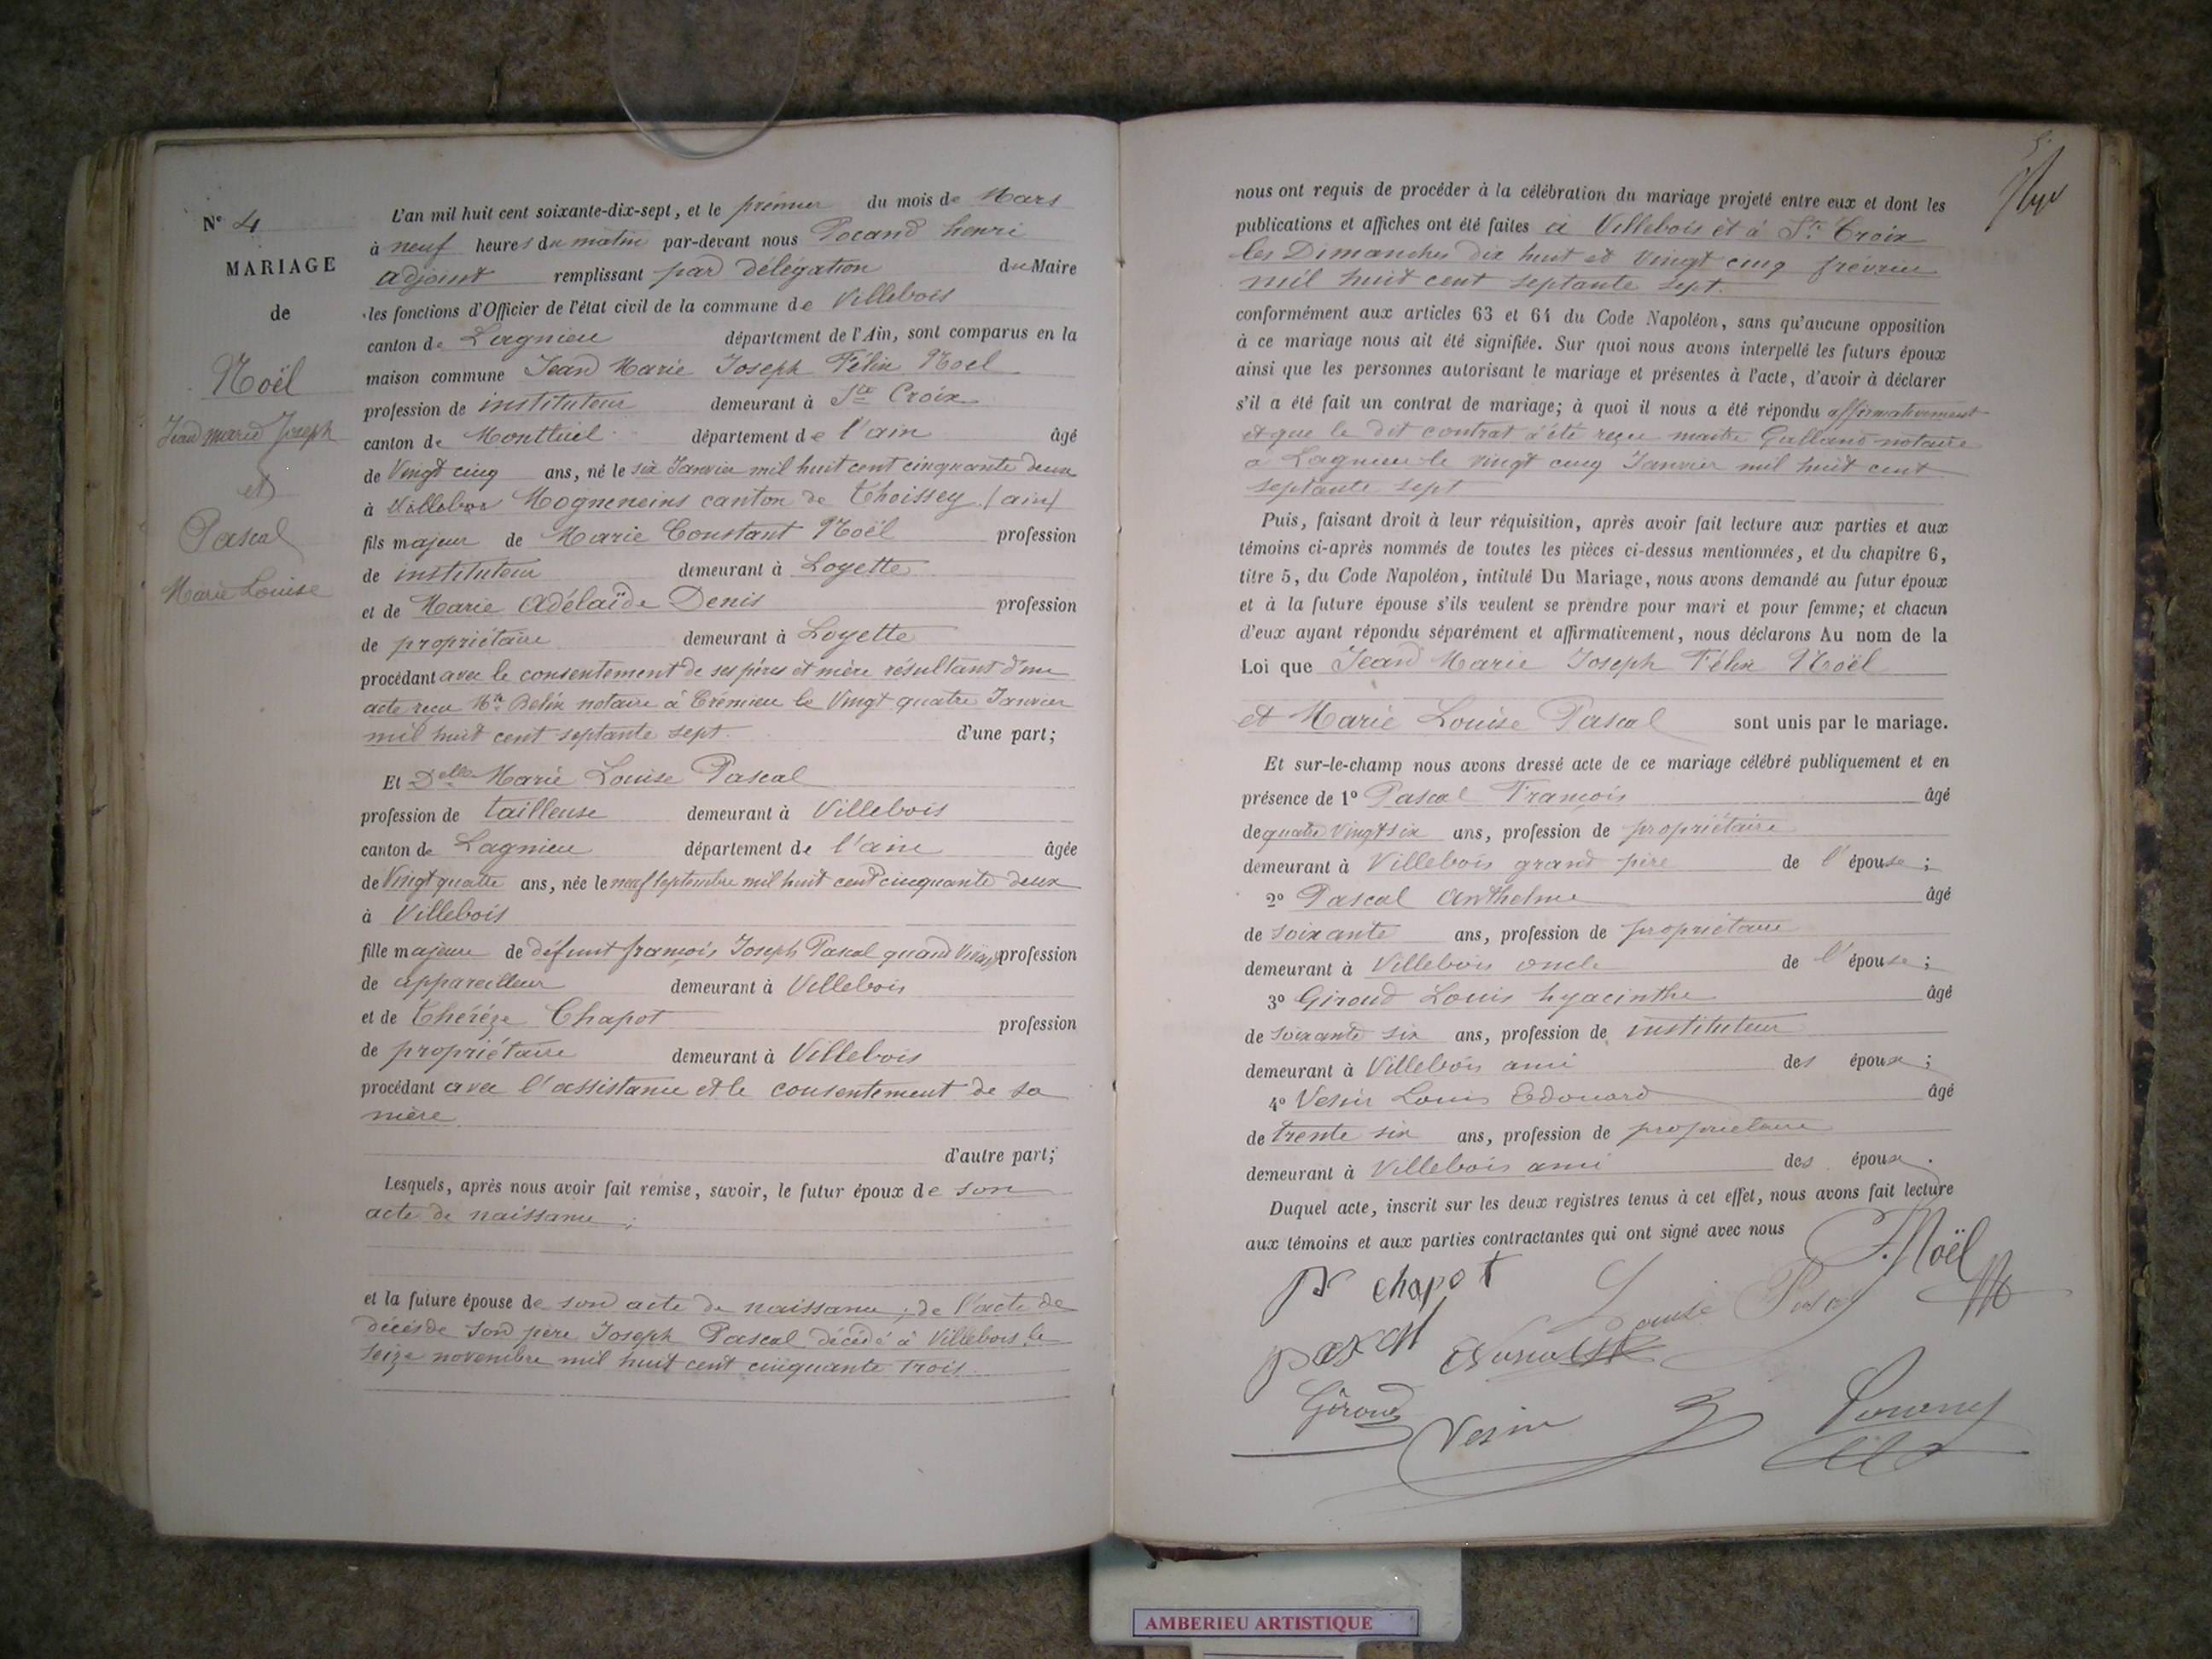 N° 4
MARIAGE
de
Noël
Jean Marie Joseph
et
Pascal
Marie Louise
L'an mil huit cent soixante-dix-sept, et le premier du mois de Mars
à neuf heures du matin par-devant nous Pocand henri
adjoint remplissant par délégation du Maire
les fonctions d'Officier de l'état civil de la commune de Villebois
canton de Lagnieu département de l'Ain, sont comparus en la
maison commune Jean Marie Joseph Félix Noel
profession de instituteur demeurant à Ste Croix
canton de Montluel département de l'ain âgé
de Vingt cinq ans, né le six Janvier mil huit cent cinquante deux
à Villebois Mogneneins canton de Thoissey (ain)
fils majeur de Marie Constant Noël profession
de instituteur demeurant à Loyette
et de Marie Adélaïde Denis profession
de propriétaire demeurant à Loyette
procédant avec le consentement de ses père et mère résultant d'un
acte reçu Me notaire à Crémieu le Vingt quatre Janvier
mil huit cent septante sept d'une part;
Et Delle Marie Louise Pascal
profession de tailleuse demeurant à Villebois
canton de Lagnieu département de l'ain âgée
de Vingt quatre ans, née le neuf septembre mil huit cent cinquante deux
à Villebois
fille majeure de défunt françois Joseph Pascal quand Vivait profession
de appareilleur demeurant à Villebois
et de Thérèze Chapot profession
de propriétaire demeurant à Villebois
procédant avec l'assistance et le consentement de sa
mère
d'autre part;
Lesquels, après nous avoir fait remise, savoir, le futur époux de son
acte de naissance;
et la future épouse de son acte de naissance; de l'acte de
décès de son père Joseph Pascal décédé à Villebois le
seize novembre mil huit cent cinquante trois
nous ont requis de procéder à la célébration du mariage projeté entre eux et dont les
publications et affiches ont été faites à Villebois et à Ste Croix
les Dimanches dix huit et vingt cinq février
mil huit cent septante sept.
conformément aux articles 63 et 64 du Code Napoléon, sans qu'aucune opposition
à ce mariage nous ait été signifiée. Sur quoi nous avons interpellé les futurs époux
ainsi que les personnes autorisant le mariage et présentes à l'acte, d'avoir à déclarer
s'il a été fait un contrat de mariage; à quoi il nous a été répondu affirmativement
et que le dit contrat a été reçu maitre Galland notaire
a Lagnieu le vingt cinq Janvier mil huit cent
septante sept
Puis, faisant droit à leur réquisition, après avoir fait lecture aux parties et aux
témoins ci-après nommés de toutes les pièces ci-dessus mentionnées, et du chapitre 6,
titre 5, du Code Napoléon, intitulé Du Mariage, nous avons demandé au futur époux
et à la future épouse s'ils veulent se prendre pour mari et pour femme; et chacun
d'eux ayant répondu séparément et affirmativement, nous déclarons Au nom de la
Loi que Jean Marie Joseph Félix Noël
et Marie Louise Pascal sont unis par le mariage.
Et sur-le-champ nous avons dressé acte de ce mariage célébré publiquement et en
présence de 1° Pascal François âgé
de quatre vingt six ans, profession de propriétaire
demeurant à Villebois grand père de l'épouse;
2° Pascal Anthelme âgé
de soixante ans, profession de propriétaire
demeurant à Villebois oncle de l'épouse;
3° Giroud Louis hyacinthe âgé
de soixante six ans, profession de instituteur
demeurant à Villebois ami des époux;
4° Vesin Louis Edouard âgé
de trente six ans, profession de propriétaire
demeurant à Villebois ami des époux.
Duquel acte, inscrit sur les deux registres tenus à cet effet, nous avons fait lecture
aux témoins et aux parties contractantes qui ont signé avec nous
F. Noël
chapot
Louise Pascal
pascal
Giroud
Vesin
AMBERIEU ARTISTIQUE